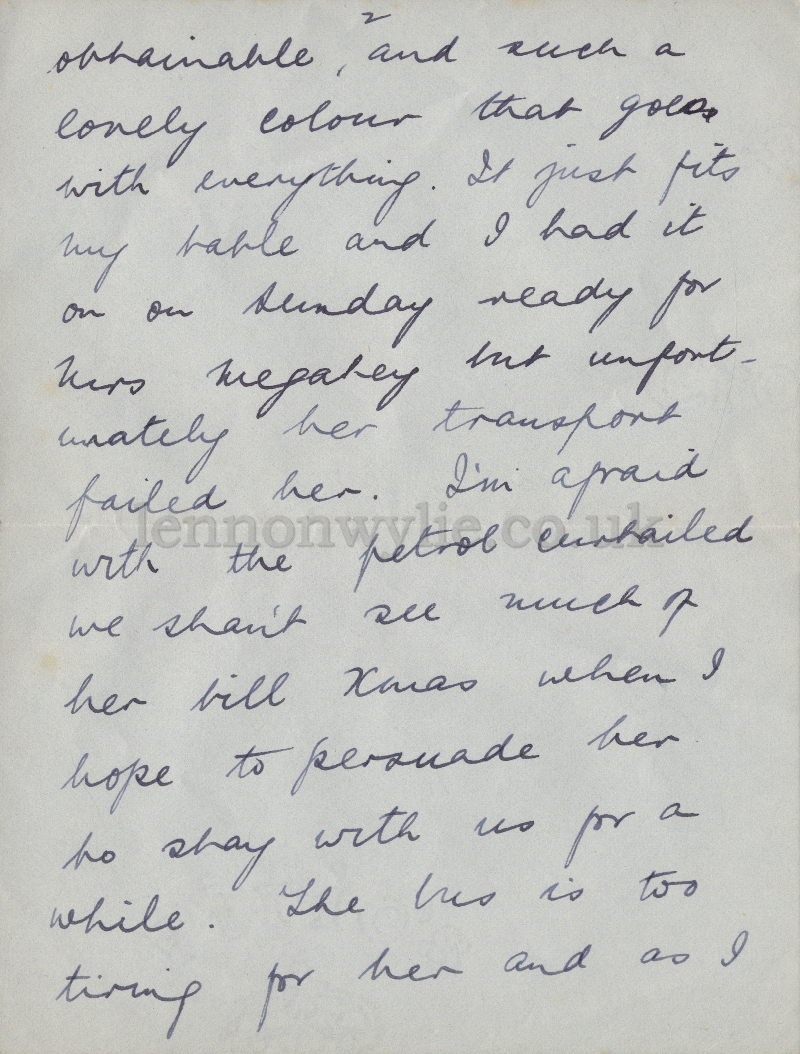 2
obtainable, and such a
lovely colour that goes
with everything. It just fits
my table and I had it
on on Sunday ready for
Mrs Megahey but unfort-
unately her transport
failed her. I'm afraid
lennonwylie.co.uk
with the petrol curtailed
we shan't see much of
her till Xmas when I
hope to persuade her
to stay with us for a
while. The bus is too
tiring for her and as I